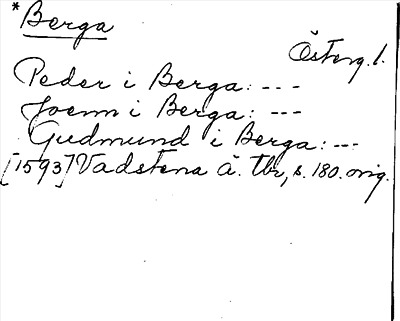 * Berga
Österg. l.
Peder i Berga: ---
Joenn i Berga: ---
Gudmund i Berga: ---
[1593] Vadstena ä. tb, s. 180. orig.